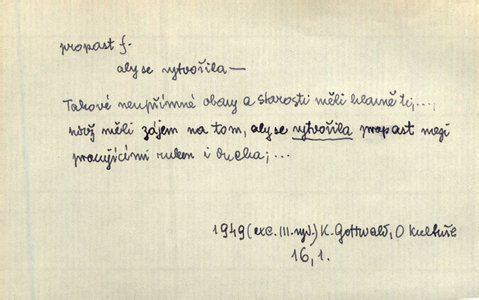 propast f.
aby se vytvořila —
Takové neupřímné obavy a starosti měli hlavně ti,...,
měli zájem na tom, aby se vytvořila propast mezi
pracujícími rukou i ducha;...
1949 (exc. III. vyd.) K. Gottwald, O kultuře
16, 1.